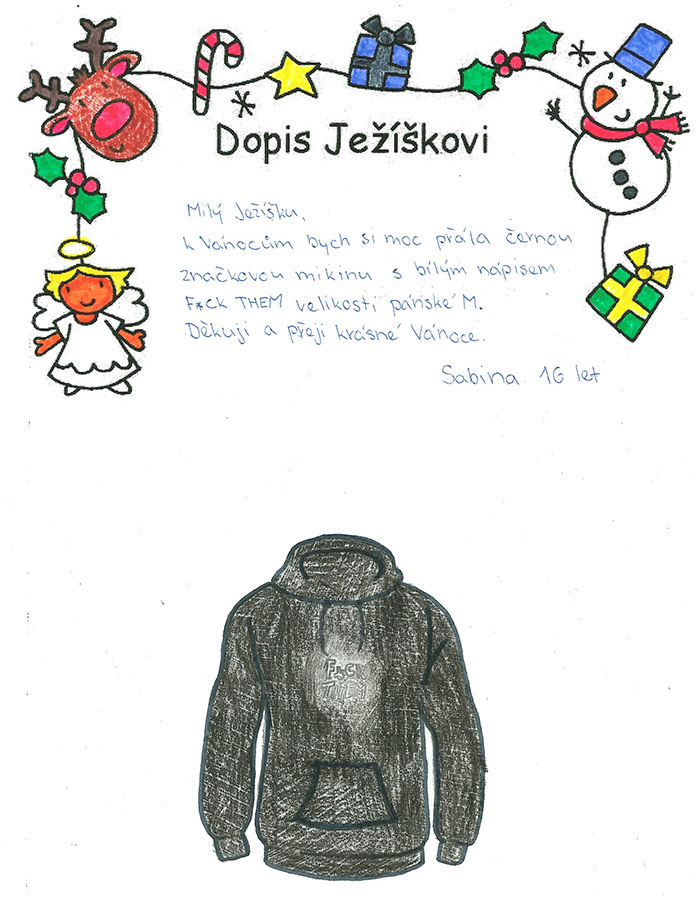 Dopis Ježíškovi
Milý Ježíšku,
k Vánocům bych si moc přála černou
značkovou mikinu s bílým nápisem
F*CK THEM velikosti pánské M.
Děkuji a přeji krásné Vánoce.
Sabina 16 let
F*CK
THEM